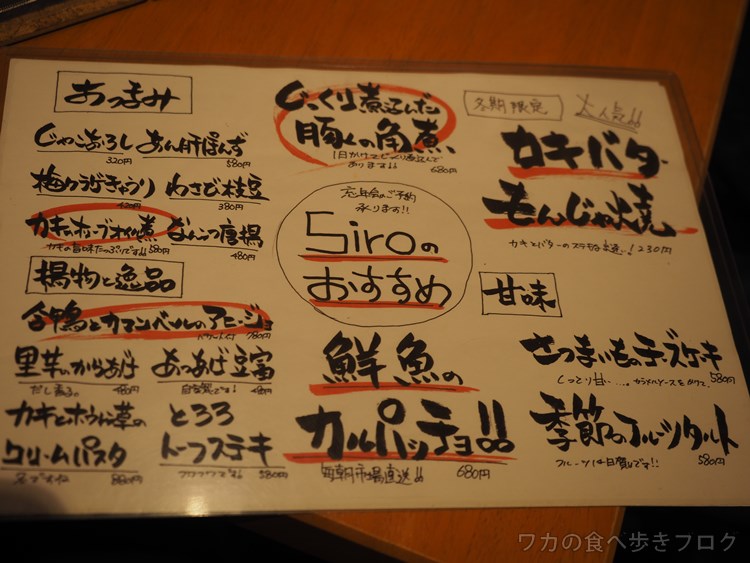 おつまみ
じゃこおろし
320円
あん肝ぽんず
580円
梅カラげきゅうり
420円
わさび枝豆
380円
カキのオリーブオイル煮
カキの旨味たっぷりです!! 580円
なんこつ唐揚
480円
揚物と逸品
合鴨とカマンベールのアヒージョ
バケット付 780円
里芋のからあげ
だし香る。 480円
あつあげ豆富
自家製です! 480円
カキとホウレン草の
クリームパスタ
880円
とろろ
トーフステキ
フワフワです♪ 580円
じっくり煮込んだ
豚くんの角煮
1日かけてじっくり煮込んで
あります!! 680円
忘年会のご予約
承ります!!
Siroの
おすすめ
鮮魚の
カルパッチョ!!
毎朝市場直送!! 680円
冬期限定
大人気!!
カキバター
もんじゃ焼
カキとバターのステキな出逢い…! 230円
甘味
さつまいものチーズケーキ
しっとり甘い…。カラメルソースをかけて。 580円
季節のフルーツタルト
フルーツは日替りです!! 580円
ワカの食べ歩きブログ